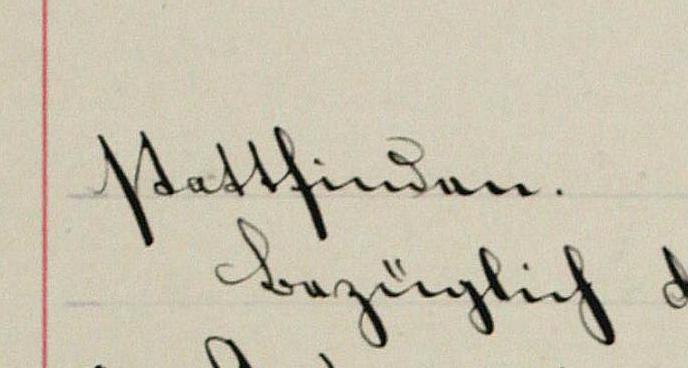 stattfinden.
Bezüglich d